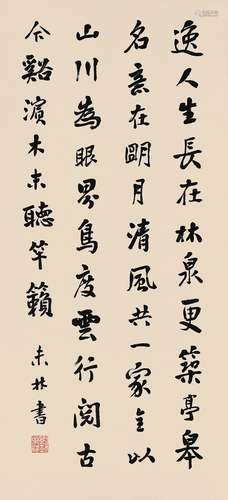 逸人生長在林泉更築亭皋
名意在明月清風共一家全以
山川為眼界鳥度雲行閱古
今谿濵木末聽竽籟
未林書